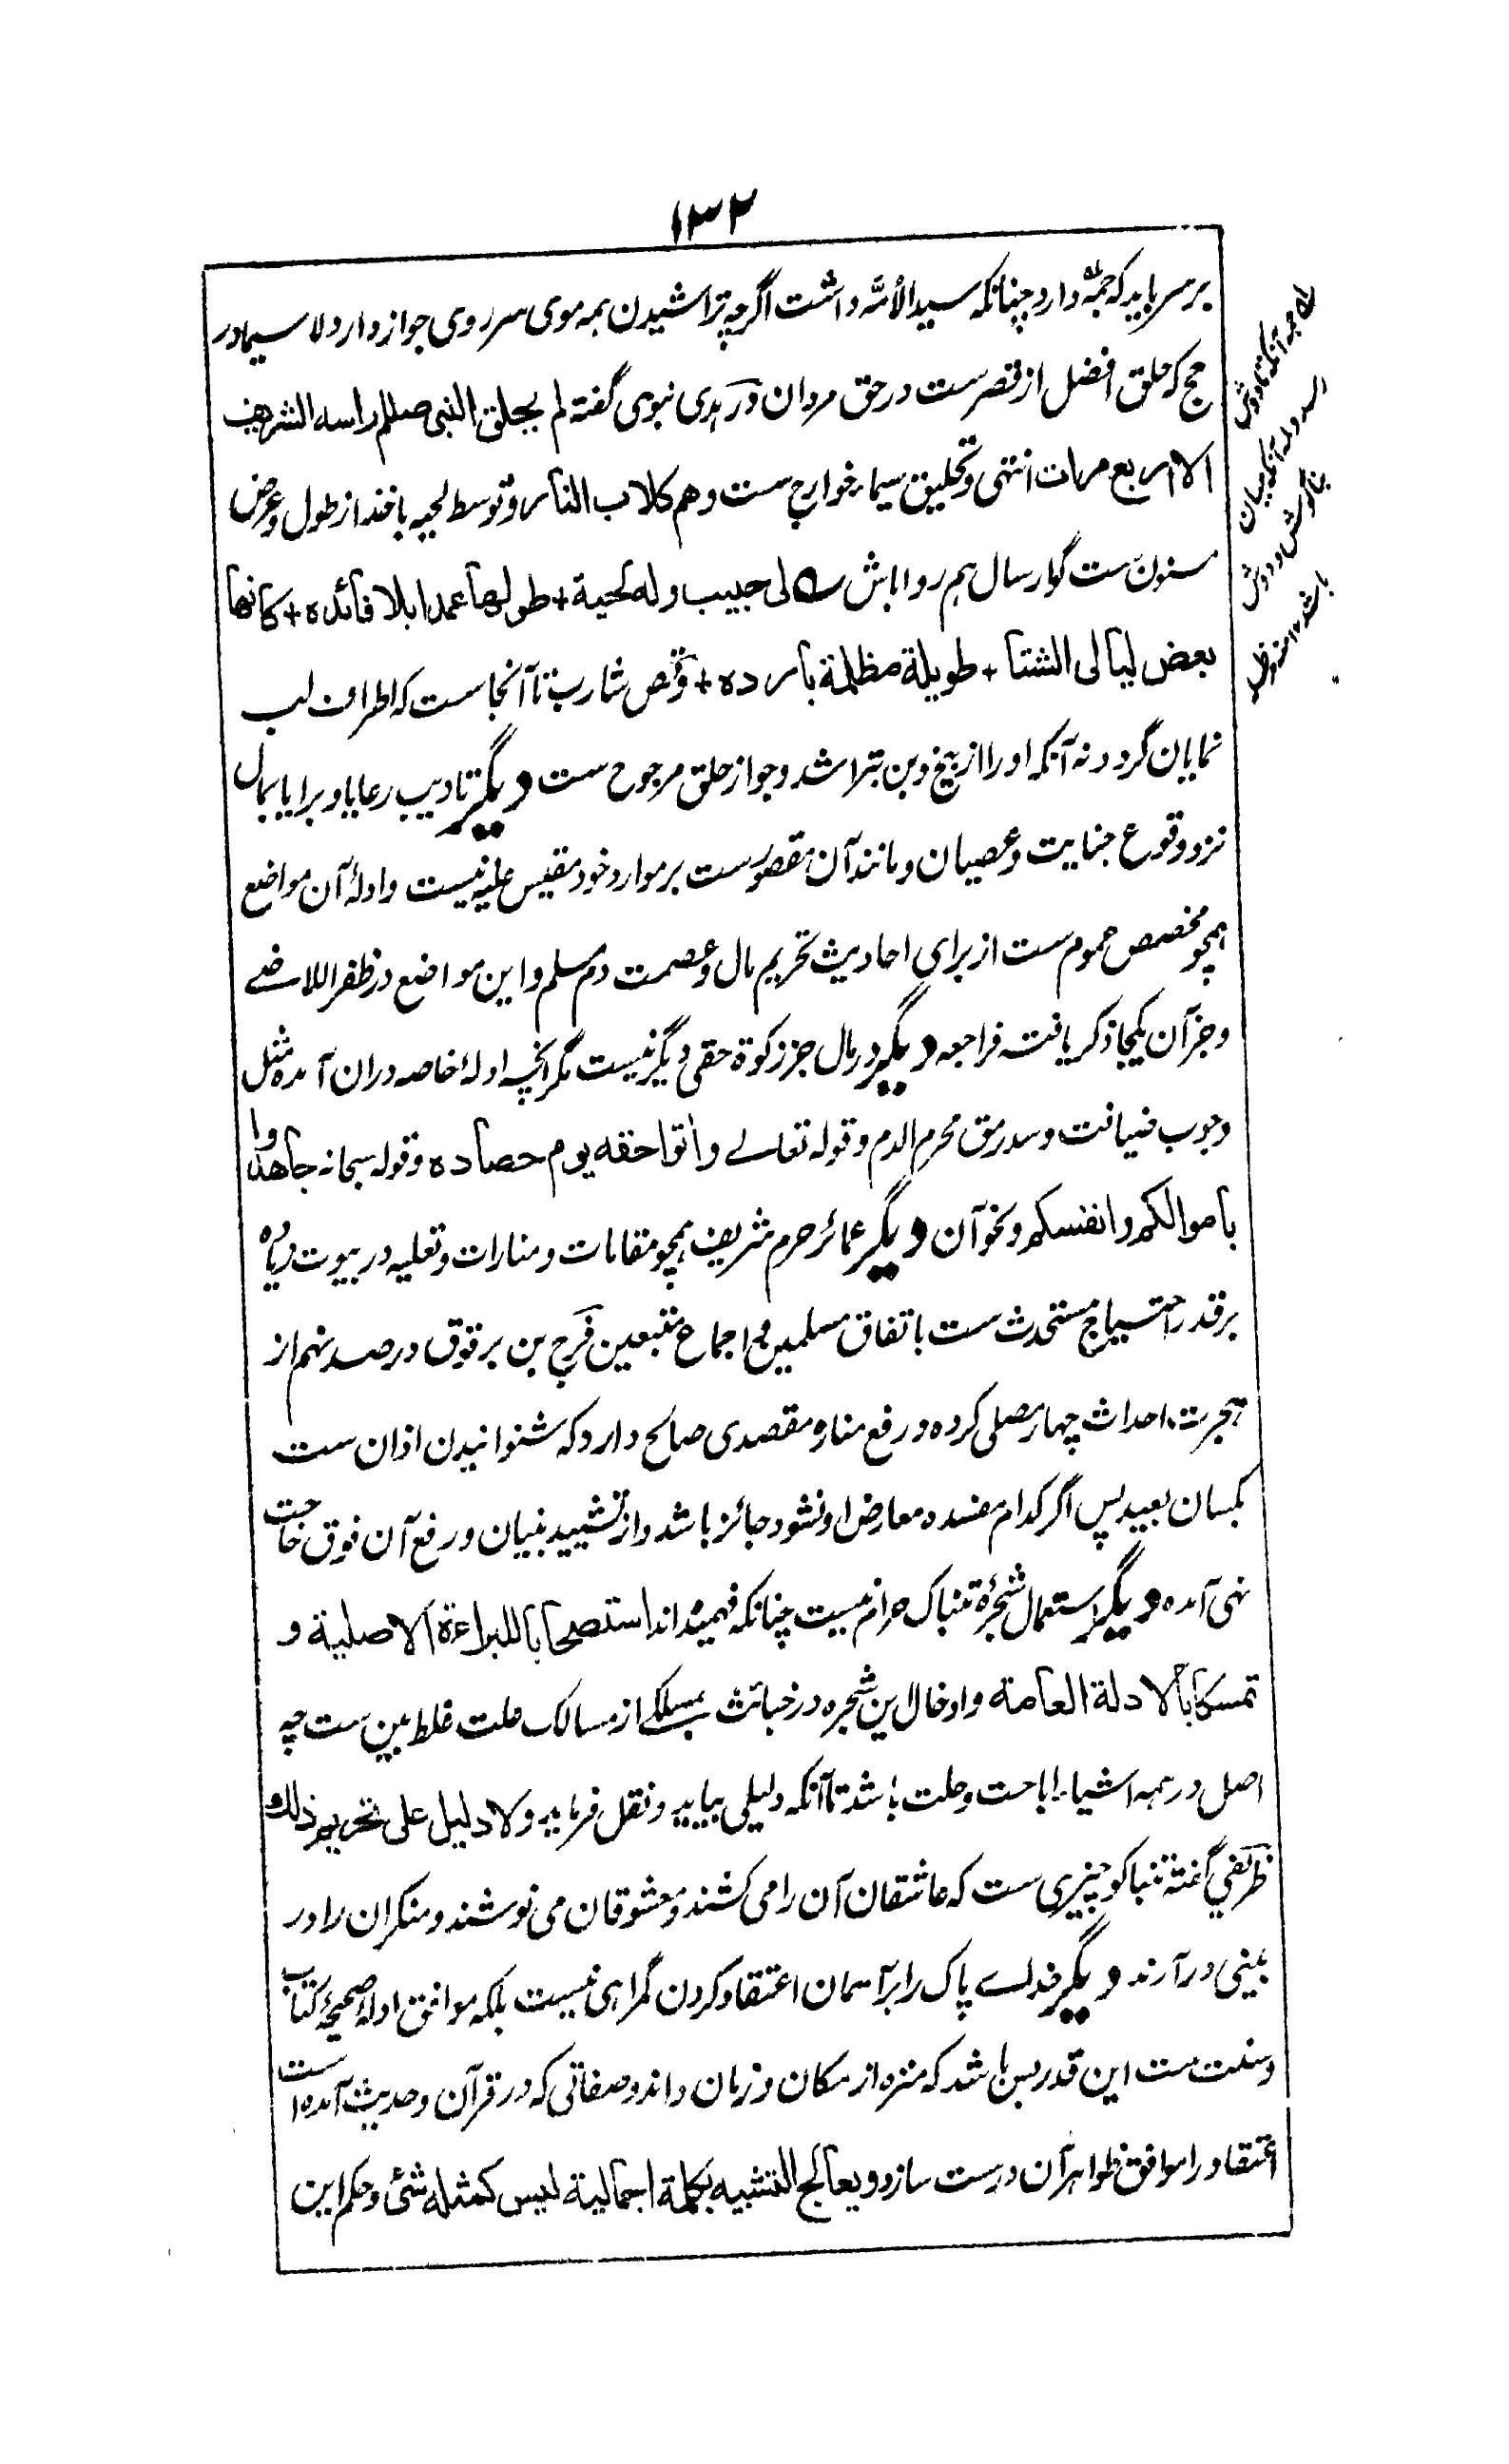 ۱۳۲
بر سر باید که جمه دارد چنانکه سید الأمة داشت اگرچه تراشیدن همه موی سر روی جواز دارد لا سیما در
حج که حلق افضل از قصرست در حق مردان و در هدی نبوی گفته لم یحلق النبی صلام راسه الشریف
الا اربع مرات انتهی و تحلیق سیماء خوارج ست و هم کلاب النار و توسط لحیه باخذ از طول و عرض
مسنون ست گو ارسال هم روا باش لی حبیب وله لحیة + طولها عمدا بلا فائده + کانها
بعض لیالی الشتا + طویلة مظلمة بارده + و قص شارب تا آنجاست که اطراف لب
نمایان گردد نه آنکه او را از بیخ و بن بتراشد و جواز حلق مرجوح ست دیگر تادیب رعایا و برایا بمال
نزد وقوع جنایت و عصیان و مانند آن مقصورست بر موارد خود مقیس علیه نیست و ادلهٔ آن مواضع
همچو مخصص عموم ست از برای احادیث تحریم مال و عصمت دم مسلم و این مواضع در ظفر اللاضی
و جز آن یکجا ذکر یافته فراجعه دیگر در مال جز زکوة حقی دیگر نیست مگر آنچه ادلهٔ خاصه دران آمده مثل
وجوب ضیافت و سد رمق محرم الدم و قوله تعالی واٰتوا حقه یوم حصاده و قوله سبحانه جاهدوا
باموالکم وانفسکم و نحو آن دیگر عمائر حرم شریف همچو مقامات و منارات و تعلیه در بیوت زیاده
بر قدر احتیاج مستحدث ست باتفاق مسلمین و اجماع متبعین فرج بن برقوق در صد نهم از
هجرت احداث چهار مصلی کرده و رفع مناره مقصدی صالح دارد که شنوانیدن اذان ست
بکسان بعید پس اگر کدام مفسده معارض او نشود جائز باشد و از تشیید بنیان و رفع آن فوق حاجت
نهی آمده دیگر استعمال شجرهٔ تنباک حرام نیست چنانکه فهمیده‌اند استصحابا للبراءة الاصلیة و
تمسکا بالادلة العامة و ادخال این شجره در خبائث بمسلکی از مسالک علت غلط بین ست چه
اصل در همه اشیاء اباحت و حلت باشد تا آنکه دلیلی بیاید و نقل فرماید ولا دلیل علی تحریم ذلک و
ظریفی گفته تنباکو چیزی ست که عاشقان آن را می کشند و معشوقان می نوشند و منکران را در
بینی در آرند دیگر خدای پاک را بر آسمان اعتقاد کردن گمراهی نیست بلکه موافق ادلهٔ صحیحهٔ کتاب
و سنت ست این قدر بس باشد که منزه از مکان و زمان داند و صفاتی که در قرآن و حدیث آمده است
اعتقاد را موافق ظواهر آن درست سازد و یعالج التشبیه بکلمة اجمالیة لیس کمثله شئ و حکم این